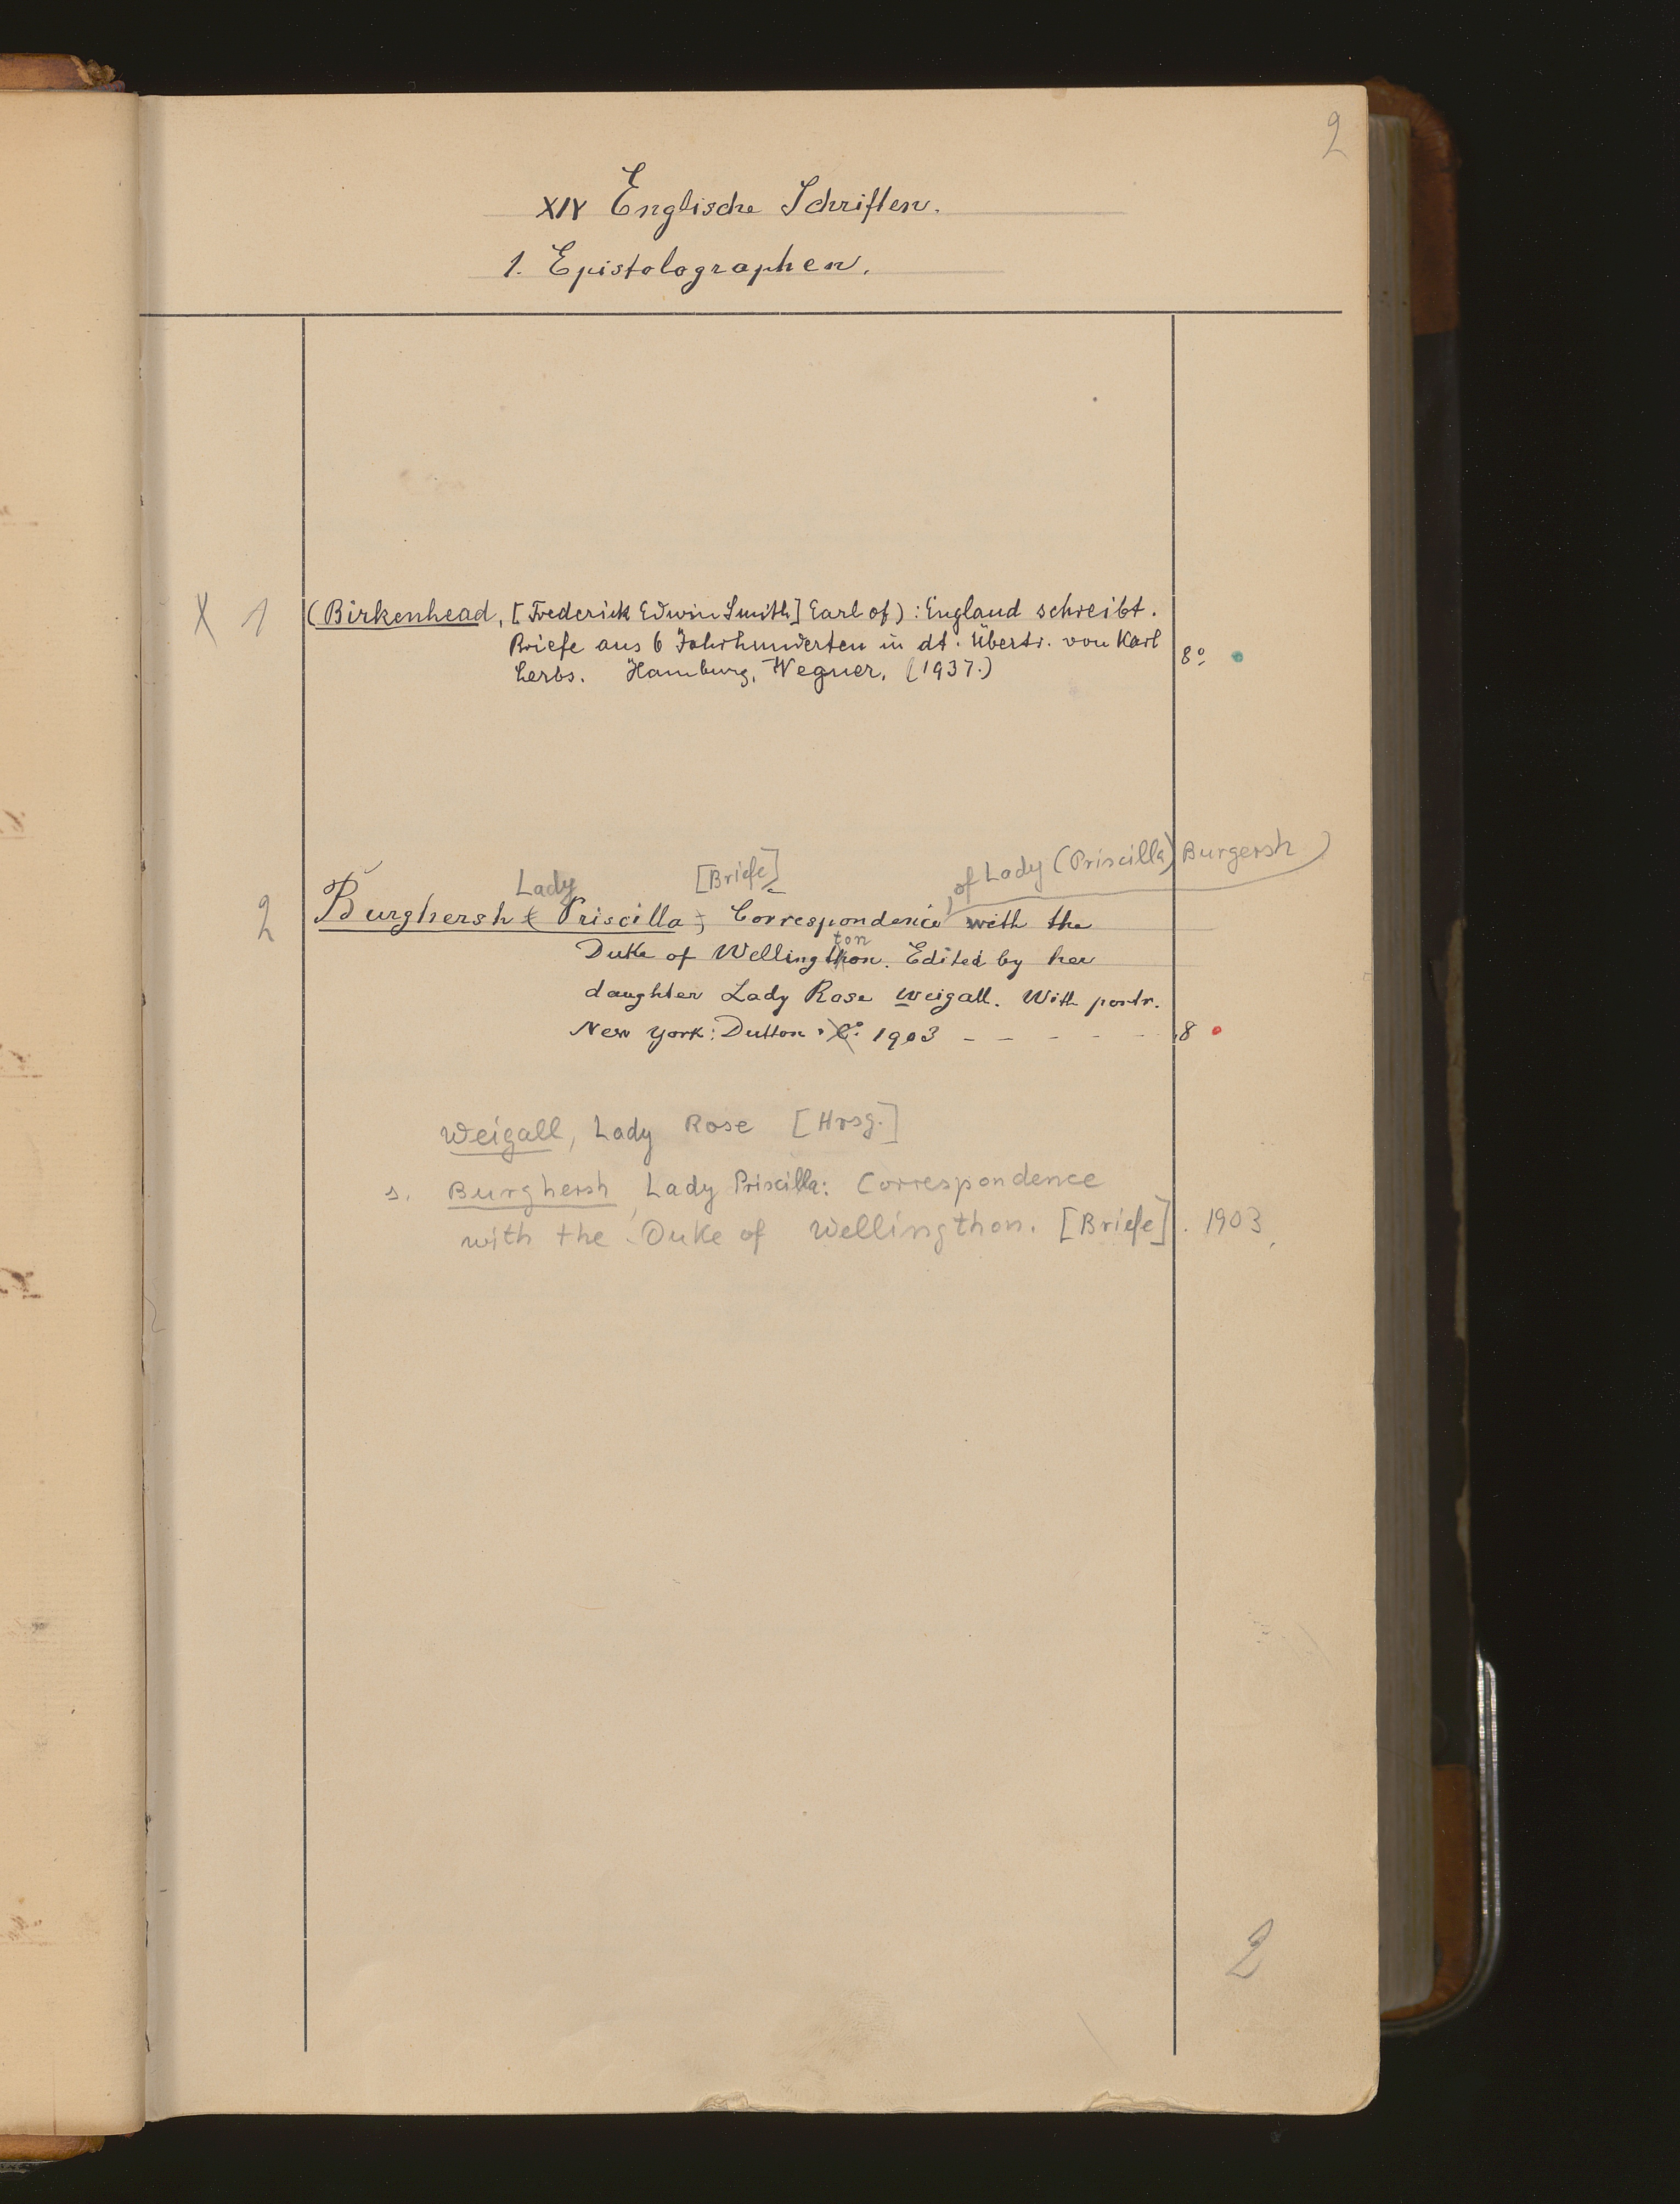 2
XIV Englische Schriften.
1. Epistolographen.
X 1 (Birkenhead, [Frederick Edwin Smith] Earl of) : England schreibt.
Briefe aus 6 Jahrhunderten in dt. Übertr. von Karl
Lerbs. Hamburg, Wegner, (1937.) 8°
Lady [Briefe] , of Lady (Priscilla) Burgersh)
2 Burghersh Priscilla, Correspondence with the
ton
Duke of Wellingthon. Edited by her
daughter Lady Rose Weigall. With portr.
New York: Dutton 1903 - - - - - 8
Weigall, Lady Rose [Hrsg.]
s. Burghersh, Lady Priscilla: Correspondence
with the Duke of Wellingthon. [Briefe]. 1903,
2